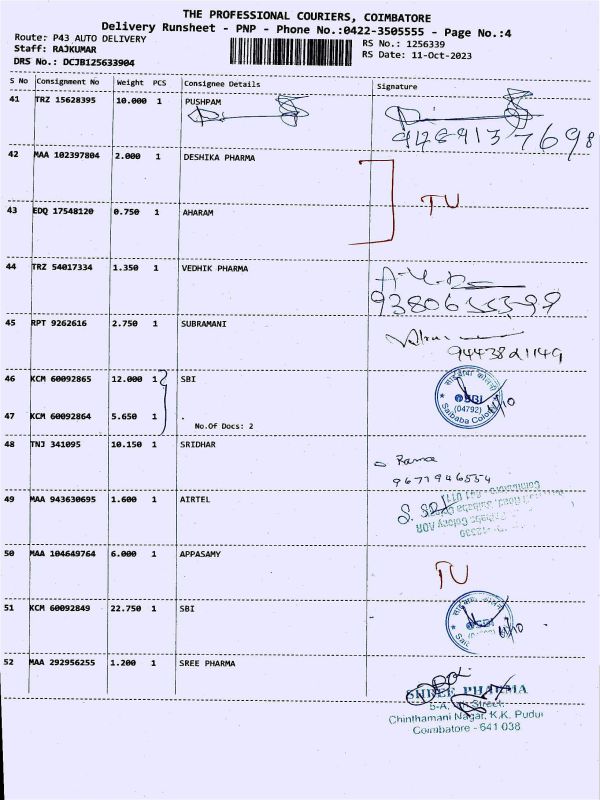 THE PROFESSIONAL COURIERS, COIMBATORE
Delivery Runsheet - PNP - Phone No.:0422-3505555 - Page No.:4
Route: P43 AUTO DELIVERY
RS No.: 1256339
Staff: RAJKUMAR
RS Date: 11-Oct-2023
DRS No.: DCJB125633904
S No Consignment No Weight PCS Consignee Details Signature
41 TRZ 15628395 10.000 1 PUSHPAM
42 MAA 102397804 2.000 1 DESHIKA PHARMA
TU
43 EDQ 17548120 0.750 1 AHARAM
44 TRZ 54017334 1.350 1 VEDHIK PHARMA
45 RPT 9262616 2.750 1 SUBRAMANI
9443821149
46 KCM 60092865 12.000 1 SBI
SBI
(04792)
Saibaba Colony
47 KCM 60092864 5.650 1 .
No.Of Docs: 2
48 TNJ 341095 10.150 1 SRIDHAR
Rama
9677946554
49 MAA 943630695 1.600 1 AIRTEL
50 MAA 104649764 6.000 1 APPASAMY
TU
51 KCM 60092849 22.750 1 SBI
SBI
52 MAA 292956255 1.200 1 SREE PHARMA
SHREE PHARMA
Street
Chinthamani Nagar, K.K. Pudur
Coimbatore - 641 038